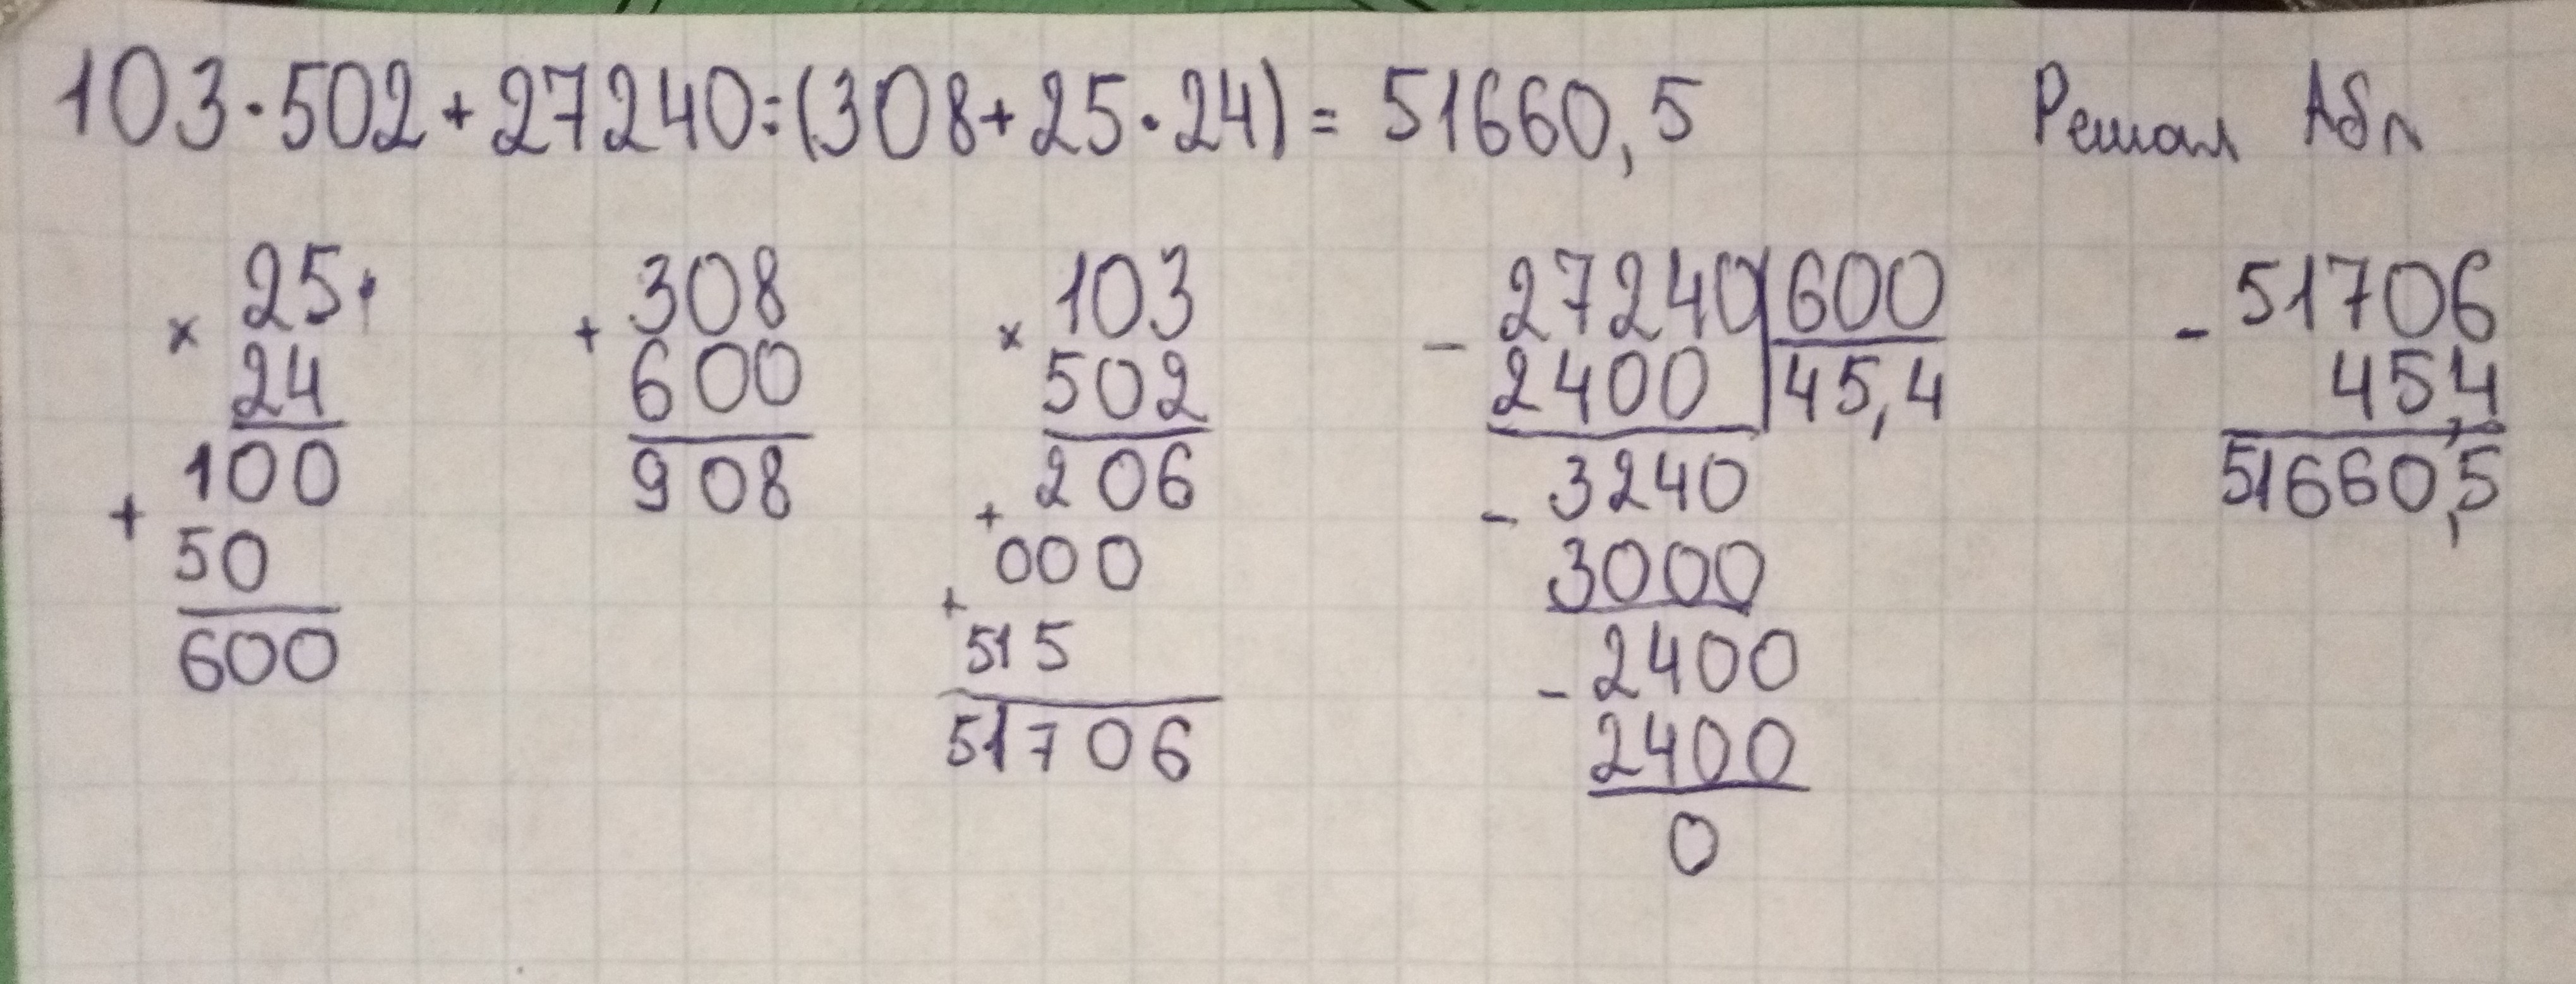 103·502+27240:(308+25·24)= 51660,5 Решал Абл
× 25
24
+ 100
50
600
+ 308
600
908
× 103
502
+ 206
+ 000
515
51706
- 27240 | 600
2400 | 45,4
- 3240
3000
- 2400
2400
0
- 51706
45,4
51660,5